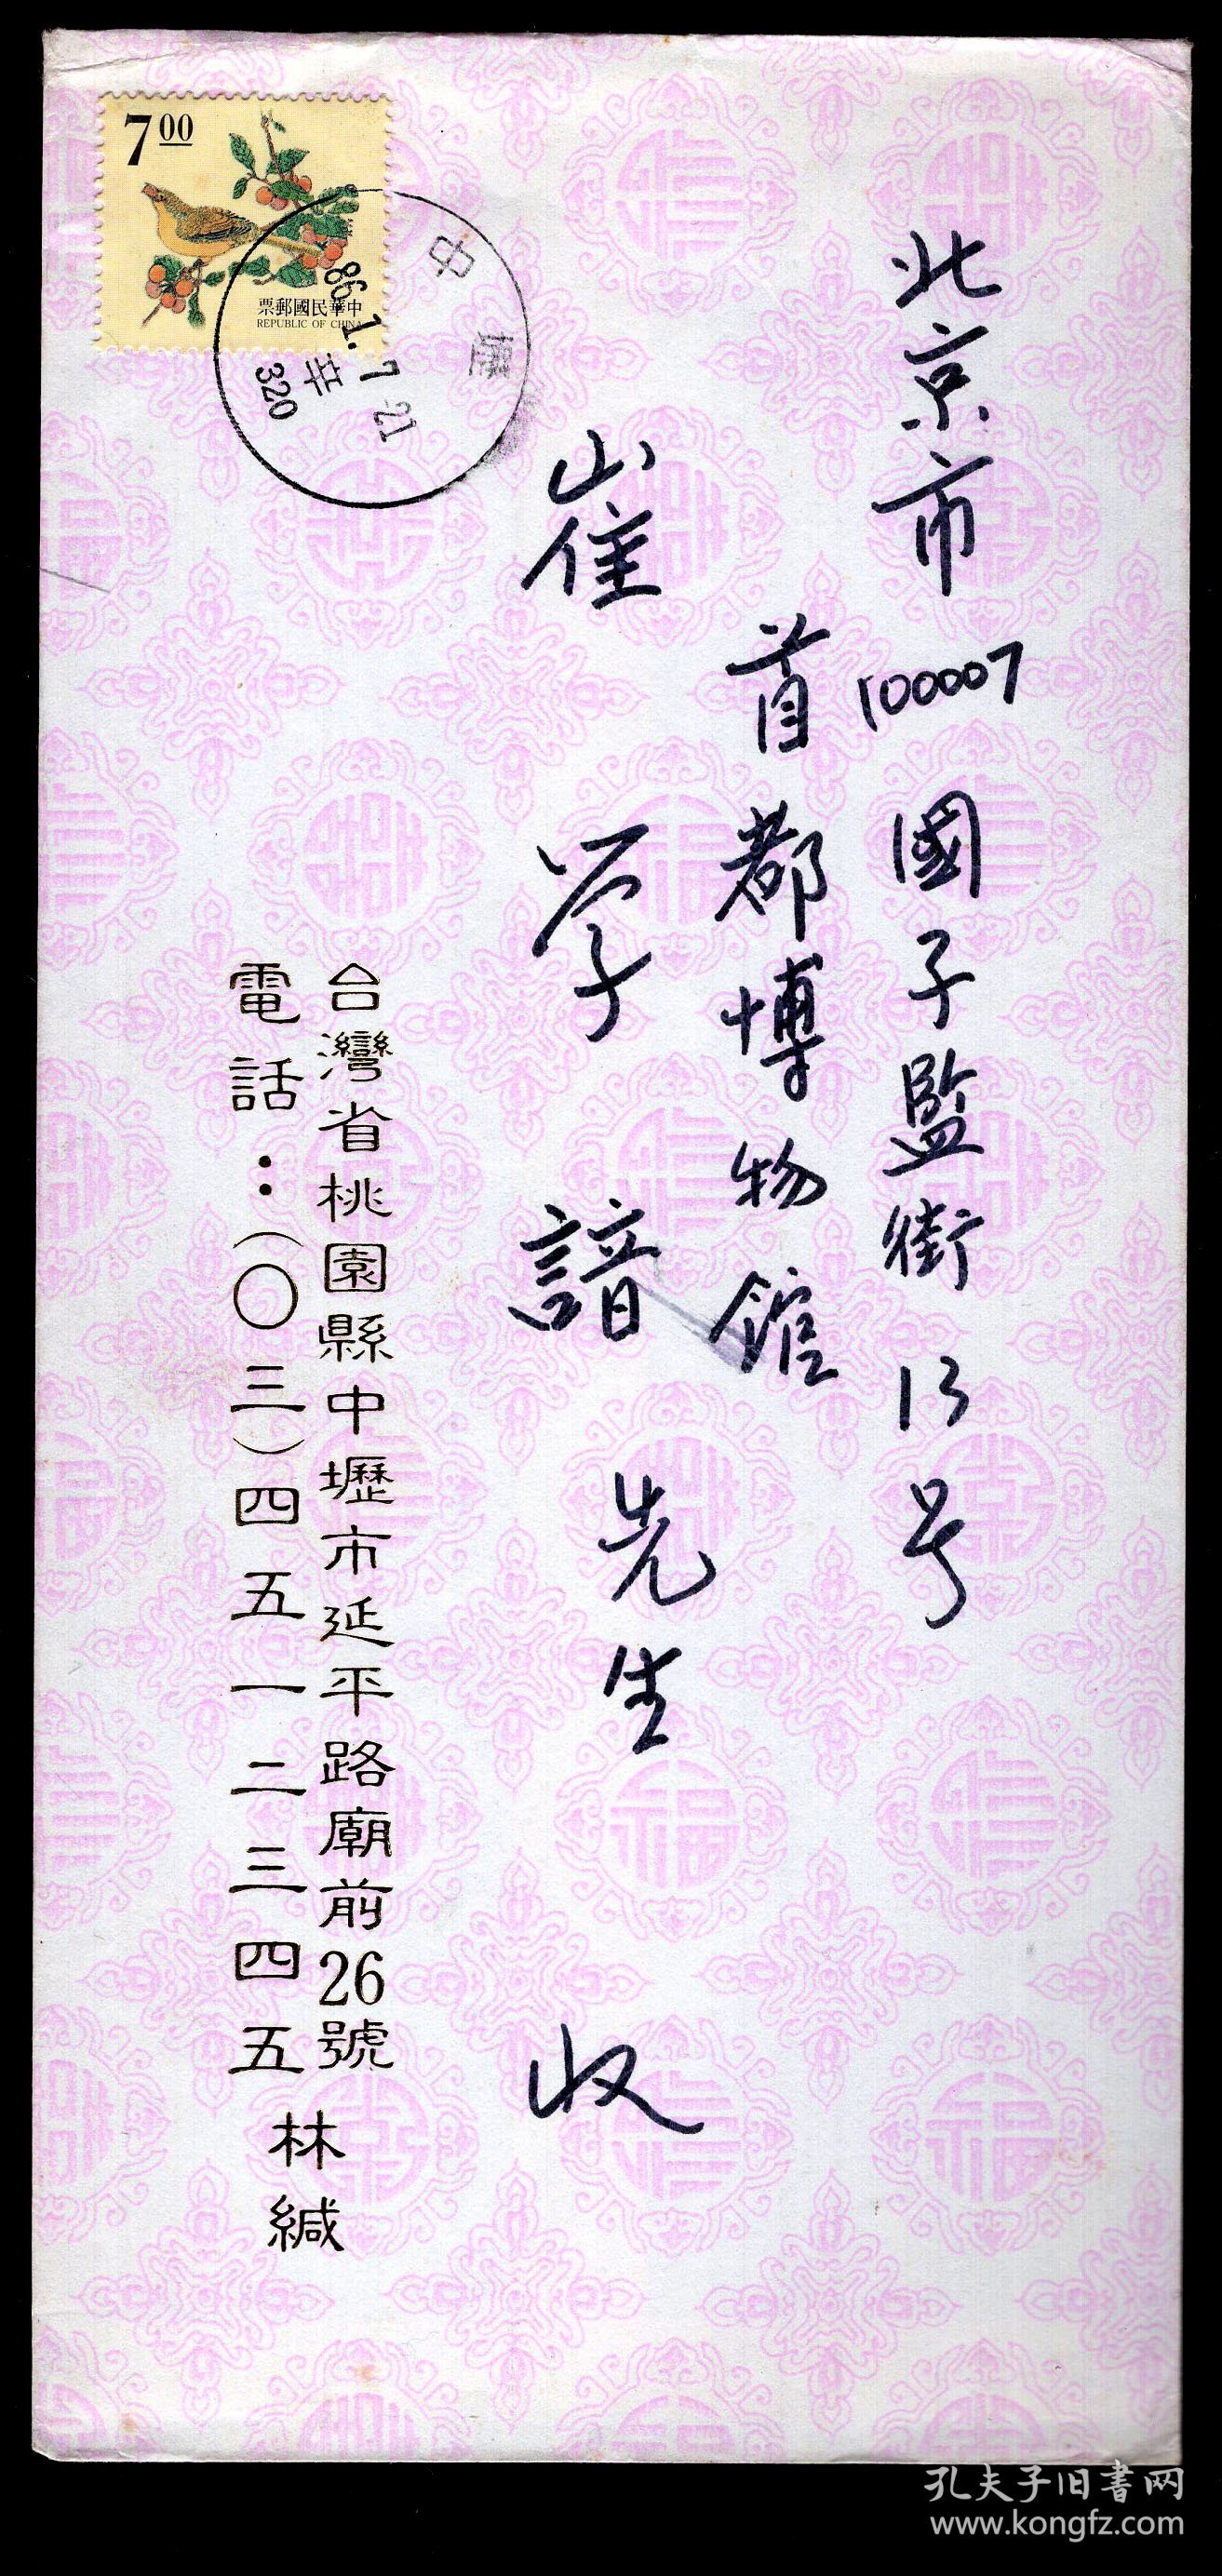 北京市 100007 國子監街13号
首都博物馆
崔学諳先生 收
台灣省桃園縣中壢市延平路廟前26號
電話：（〇三）四五一二三四五
林緘
7 00
票郵國民華中
REPUBLIC OF CHINA
中壢
86.1.7 21
辛
320
孔夫子旧書网
www.kongfz.com